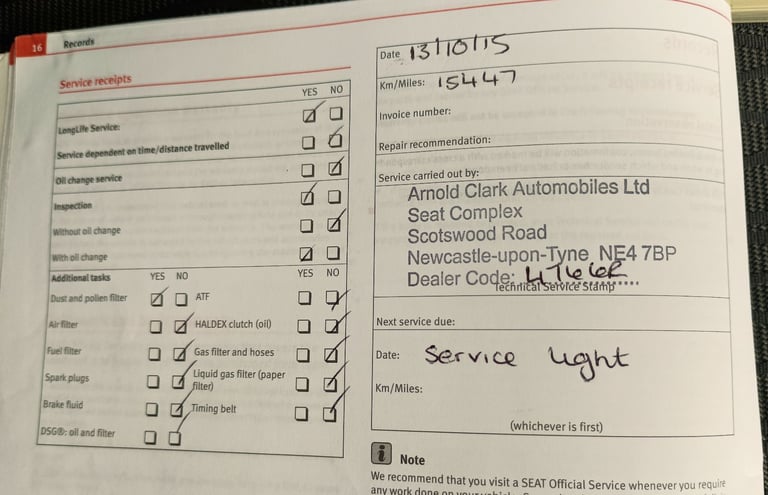 16 Records
Service receipts
YES NO
LongLife Service:
Service dependent on time/distance travelled
Oil change service
Inspection
Without oil change
With oil change
Additional tasks YES NO YES NO
Dust and pollen filter ATF
Air filter HALDEX clutch (oil)
Fuel filter Gas filter and hoses
Spark plugs Liquid gas filter (paper
filter)
Brake fluid Timing belt
DSG®: oil and filter
Date 13/10/15
Km/Miles: 15447
Invoice number:
Repair recommendation:
Service carried out by:
Arnold Clark Automobiles Ltd
Seat Complex
Scotswood Road
Newcastle-upon-Tyne, NE4 7BP
Dealer Code:
Technical Service Stamp
Next service due:
Date: Service light
Km/Miles:
(whichever is first)
i Note
We recommend that you visit a SEAT Official Service whenever you require
any work done on your